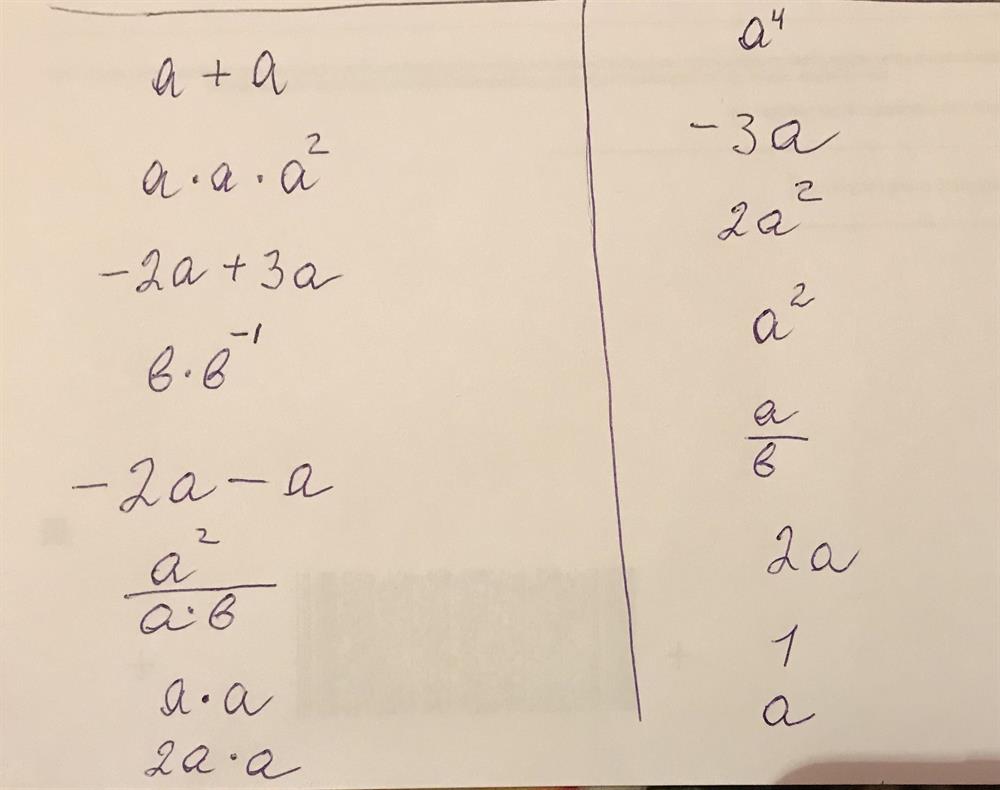 a + a
a · a · a²
-2a + 3a
в · в⁻¹
-2a - a
a²
a · в
a · a
2a · a
a⁴
-3a
2a²
a²
a
в
2a
1
a